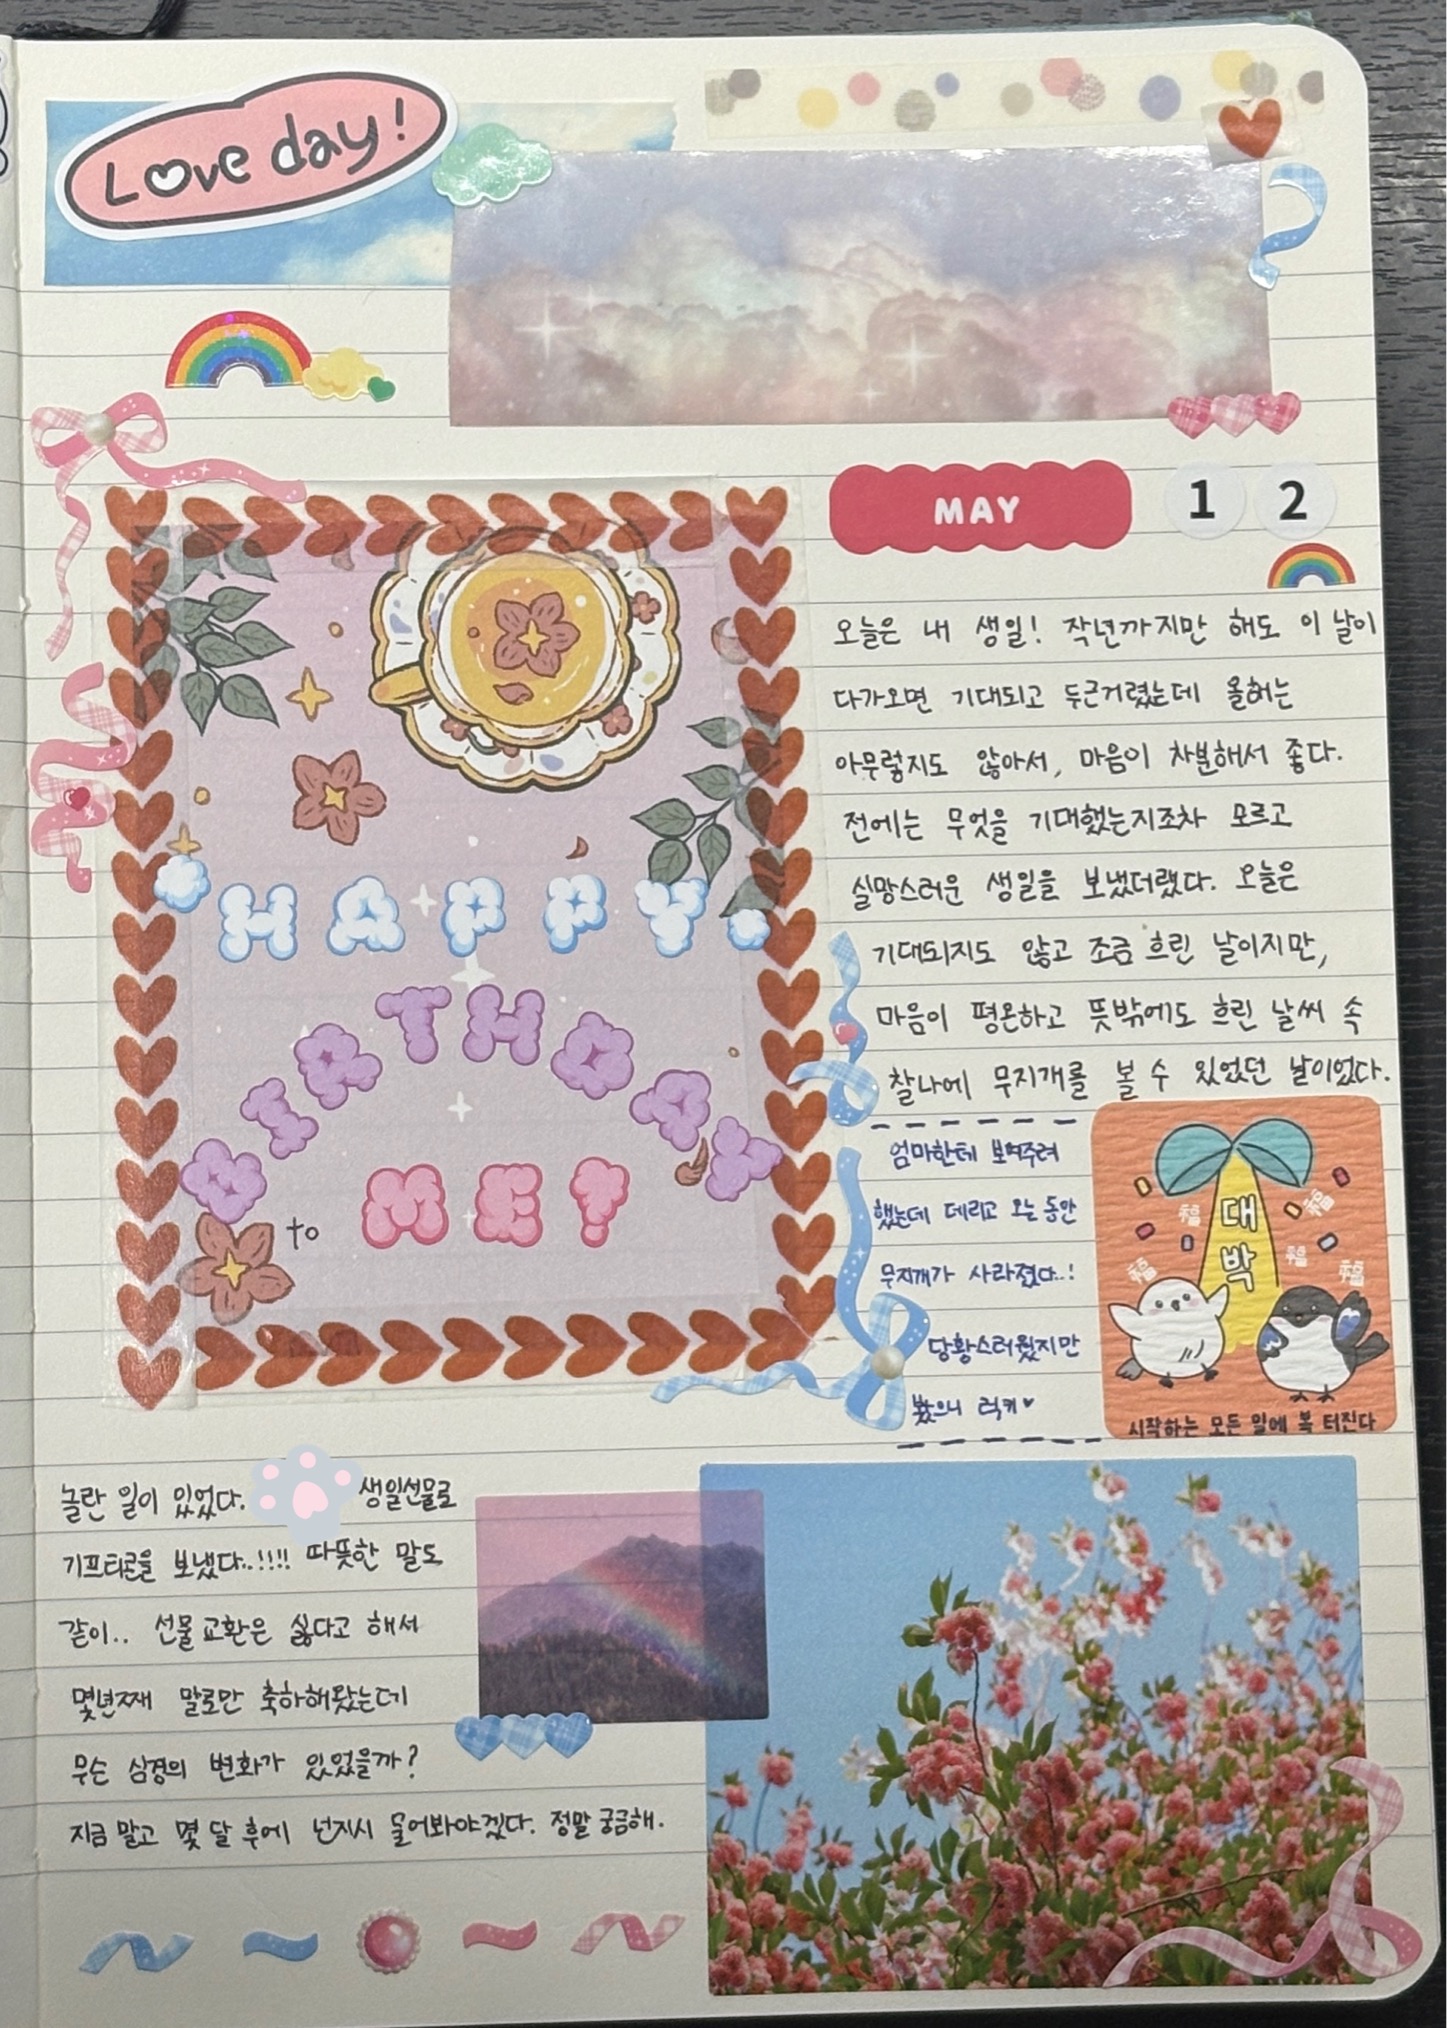 Love day!
MAY 12
오늘은 내 생일! 작년까지만 해도 이 날이
다가오면 기대되고 두근거렸는데 올해는
아무렇지도 않아서, 마음이 차분해서 좋다.
전에는 무엇을 기대했는지조차 모르고
실망스러운 생일을 보냈더랬다. 오늘은
기대되지도 않고 조금 흐린 날이지만,
마음이 평온하고 뜻밖에도 흐린 날씨 속
찰나에 무지개를 볼 수 있었던 날이었다.
HAPPY
BIRTHDAY
to ME!
엄마한테 보여주려
했는데 데리고 오는 동안
무지개가 사라졌다..!
당황스러웠지만
봤으니 럭키♥
대박
福
福
福
福
시작하는 모든 일에 복 터진다
놀란 일이 있었다. 생일선물로
기프티콘을 보냈다..!!!! 따뜻한 말도
같이.. 선물교환은 싫다고 해서
몇년째 말로만 축하해왔는데
무슨 심경의 변화가 있었을까?
지금 말고 몇 달 후에 넌지시 물어봐야겠다. 정말 궁금해.